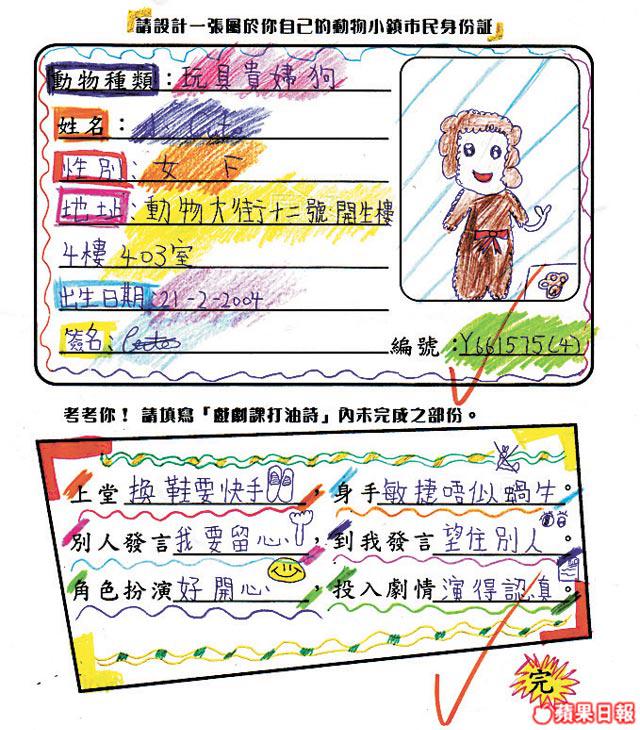 請設計一張屬於你自己的動物小鎮市民身份証
動物種類：玩具貴婦狗
姓名：
性別：女 下
地址：動物大街十二號開生樓
4樓 403室
出生日期：21-2-2004
簽名：
編號：Y661575(4)
考考你！請填寫「戲劇課打油詩」內未完成之部份。
上堂換鞋要快手，身手敏捷唔似蝸牛。
別人發言我要留心，到我發言望住別人。
角色扮演好開心，投入劇情演得認真。
完
蘋果日報